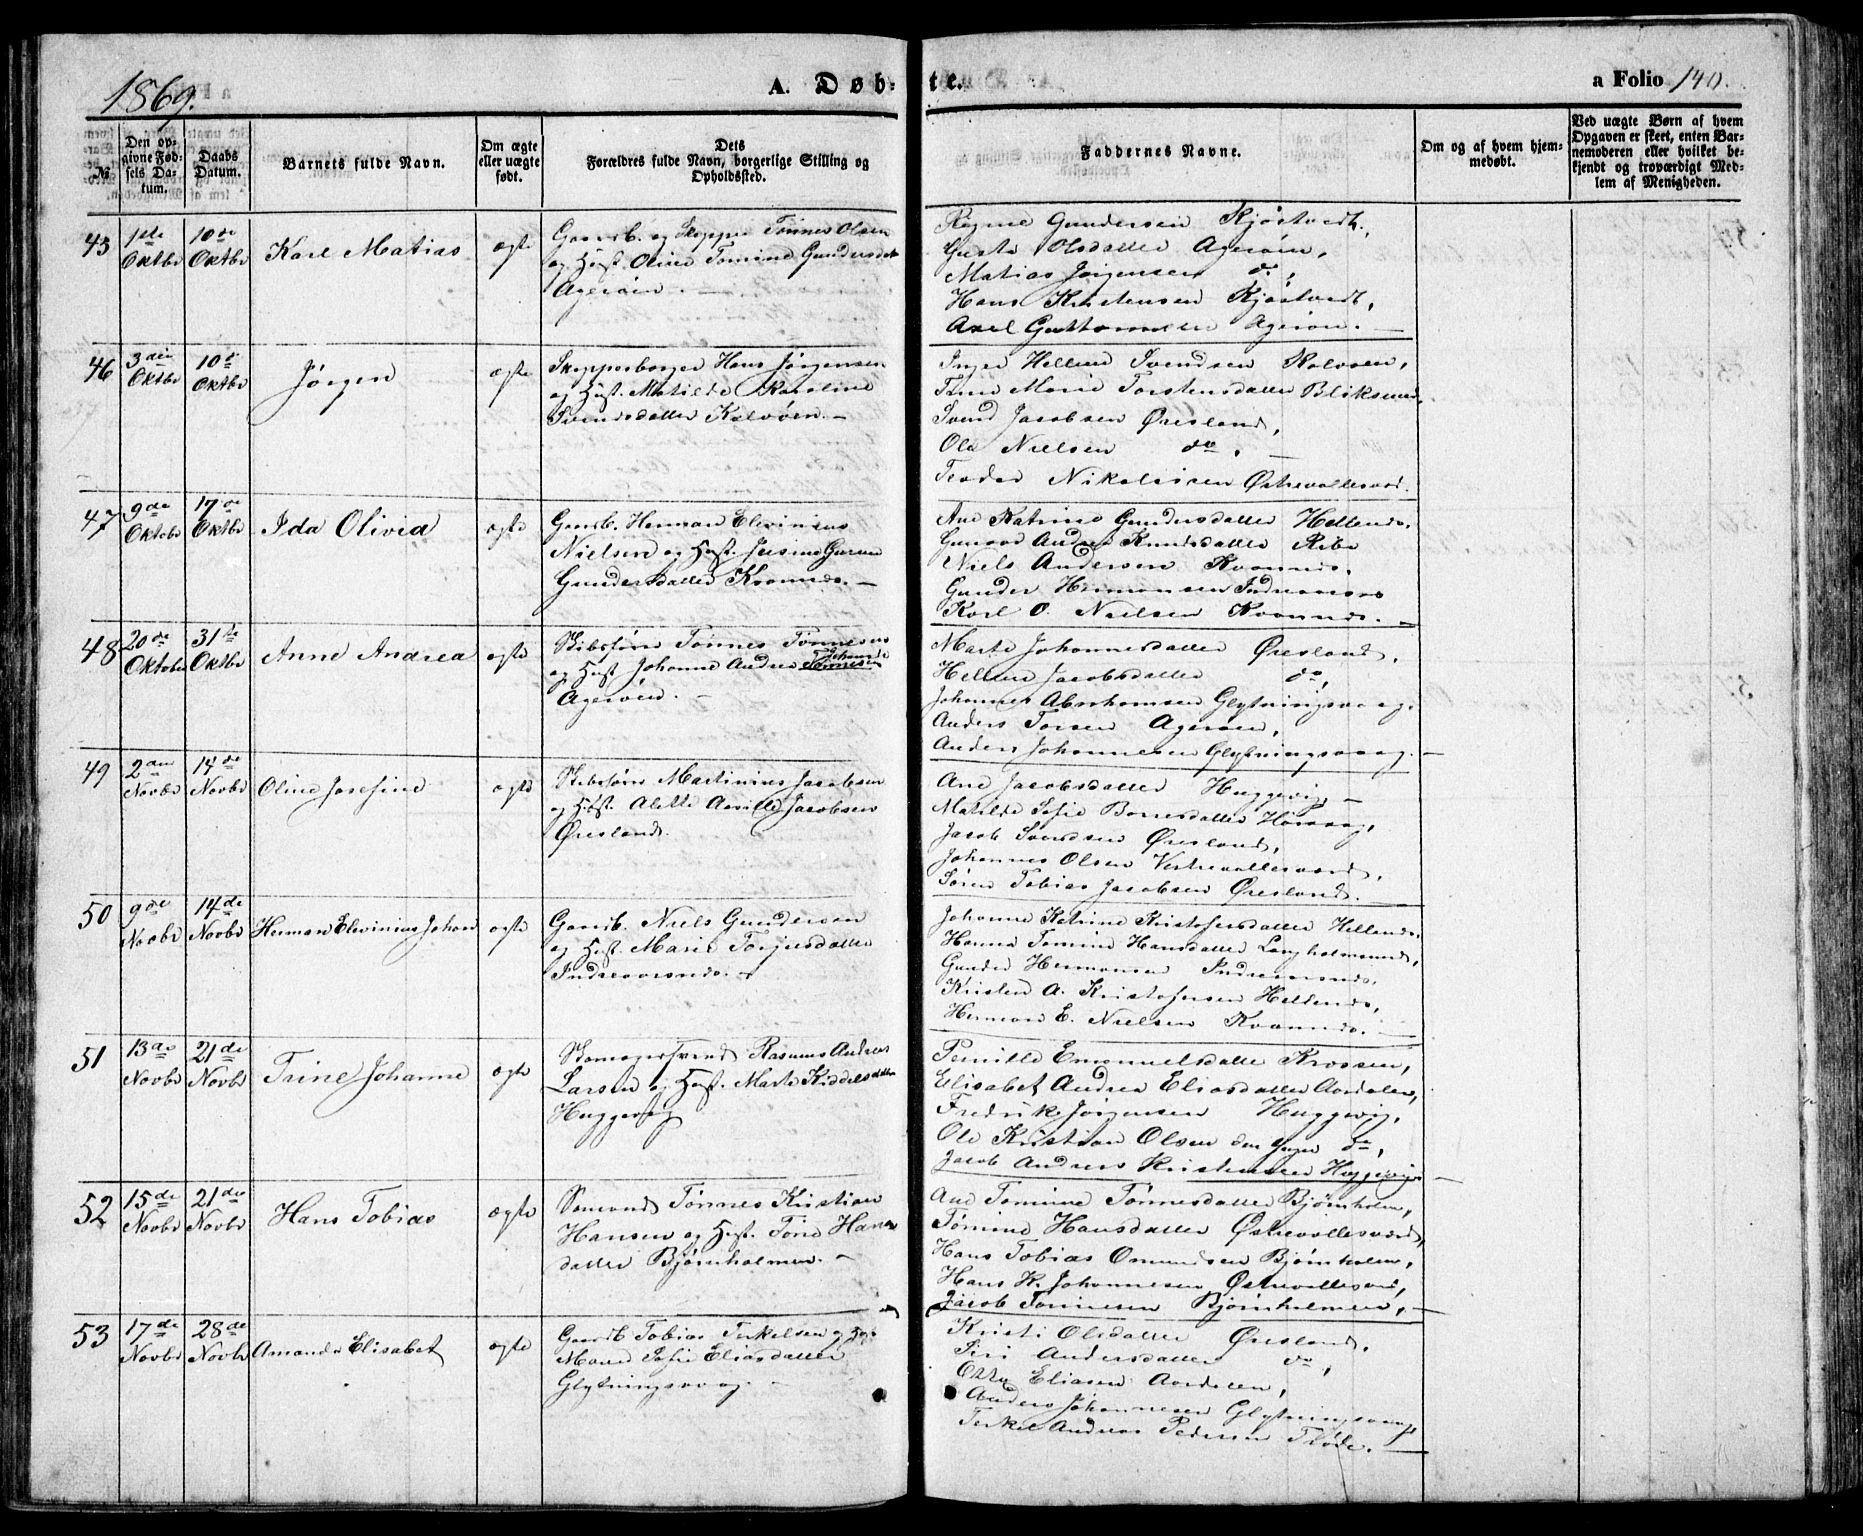 1869.
A. Døb-
te.
a Folio 140.
№
Den op-
givne Fød-
sels Da-
tum.
Daabs
Datum.
Barnets fulde Navn.
Om ægte
eller uægte
født.
Dets
Forældres fulde Navn, borgerlige Stilling og
Opholdssted.
Faddernes Navne.
Om og af hvem hjem-
medøbt.
Ved uægte Børn af hvem
Opgaven er skeet, enten Bar-
nemoderen eller hvilket be-
kjendt og troværdigt Med-
lem af Menigheden.
45
1ste
Oktbr
10de
Oktbr
Karl Matias
ægte
Gaardb. og Skipper Tønnes Olsen
og Hust. Oline Tomine Gundersdat
Agerøen.
Gundersen Kjøstvedt,
Olsdatter Agerøen,
Matias Jørgensen do,
Hans Kristensen Kjøstvedt,
Axel Guttormsen Agerøen.
46
3die
Oktbr
10de
Oktbr
Jørgen
ægte
Skipperborger Hans Jørgensen
og Hust. Matilde Karoline
Svendsdatter Kalvøen.
Inger Helene Svendsen Kalvøen,
Marie Torstensdatter Bliksund,
Svend Jacobsen Øresland,
Ole Nielsen do,
Teodor Nikolaisen Østrevallesverd.
47
9de
Oktobr
17de
Oktbr
Ida Olivia
ægte
Gaardb. Herman Elevinius
Nielsen og Hust. Gurine
Gundersdatter Kvannes.
Ane Katrine Gundersdatter Hellenes,
Andrea Knudsdatter Ribe
Niels Andersen Kvannes,
Gunder Hermansen Indreaarsnes
Karl O. Nielsen Kvannes.
48
20de
Oktobr
31te
Oktbr
Anne Andrea
ægte
Skibsfører Tønnes Tønnesen
og Hust Johanne Andrea Tønnesen
Agerøen.
Marte Johannesdatter Øresland,
Helene Jacobsdatter do,
Johannes Abrahamsen Glytningsvaag,
Anders Torsen Agerøen,
Anders Johannesen Glytningsvaag.
49
2den
Novbr
14de
Novbr
Oline Josefine
ægte
Skibsfører Martinius Jacobsen
og Hust. Alette Jacobsen
Øresland.
Ane Jacobsdatter Huggevig,
Matilde Sofie Borresdatter Høvaag,
Jacob Svendsen Øresland,
Johannes Olsen Vestrevallesverd,
Søren Tobias Jacobsen Øresland.
50
9de
Novbr
14de
Novbr
Herman Elevinius Johan
ægte
Gaardb. Niels Gundersen
og Hust. Marie Torjusdatter
Indreaarsnes.
Johanne Katrine Kristofersdatter Hellenes,
Hanne Tomine Hansdatter Langholmsund,
Gunder Hermansen Indreaarsnes,
Kristen A. Kristofersen Hellenes,
Herman E. Nielsen Kvannes.
51
13de
Novbr
21de
Novbr
Trine Johanne
ægte
Skomagersvend Rasmus Andreas
Larsen og Hust. Marte Kiddelsdatter
Huggevig
Pernille Emanuelsdatter Krossen,
Elisabet Andrea Eliasdatter Aardalen,
Fredrik Jørgensen Huggevig,
Ole Kristian Olsen den yngre do,
Jacob Andreas Kristensen Huggevig
52
15de
Novbr
21de
Novbr
Hans Tobias
ægte
Sømand Tønnes Kristian
Hansen og Hust. Tone Hans
datter Bjørnholmen.
Ane Tomine Tønnesdatter Bjørnholm,
Tomine Hansdatter Østrevallesverd,
Hans Tobias Omundsen Bjørnholm,
Hans K. Johannesen Østrevallesverd,
Jacob Tønnesen Bjørnholmen,
53
17de
Novbr
28de
Novbr
Amanda Elisabet
ægte
Gaardb. Tobias Terkelsen og Hust
Maren Sofie Eliasdatter
Glytningsvaag.
Kristi Olsdatter Øresland,
Siri Andersdatter do,
Otto Eliasen Aardalen,
Anders Johannesen Glytningsvaag,
Terkel Andreas Pedersen Fløde.